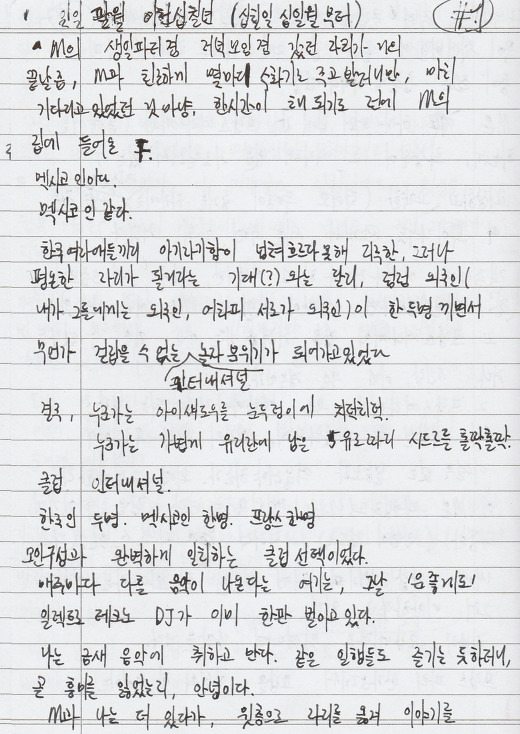 팔월 이천십칠년 (십칠일 십일월부터) #1
M의 생일파티 겸 저녁모임 겸 갔던 자리가 거의
끝날즘, M과 친하게 몇마디 주고 받더니만, 마치
기다리고 있었던 것 마냥, 한시간이 채 되기도 전에 M의
집에 들어온 F.
멕시코인이다.
멕시코인 같다.
한국여자애들끼리 아기자기함이 넘쳐흐르다 못해 지극한, 그러나
평온한 자리가 될거라는 기대(?)와는 달리, 덥럽 외국인(
내가 그들에게는 외국인, 어차피 서로가 외국인)이 한두명 끼면서
무언가 걷잡을 수 없는 놀자 분위기가 되어가고있었다
인터내셔널
결국, 누군가는 아이섀도우를 눈두덩이에 처덕처덕.
누군가는 가볍게 유리잔에 남은 5유로짜리 시드르를 홀짝홀짝.
클럽 인터내셔널.
한국인 두명. 멕시코인 한명. 프랑스 한명
모인구성과 완벽하게 일치하는 클럽 선택이었다.
매주마다 다른 음악이 나온다는 여기는, 그날 '운좋게도'
일렉트로 테크노 DJ가 이미 한판 벌이고 있다.
나는 금새 음악에 취하고 만다. 같은 일행들도 즐기는 듯하더니,
곧 흥미를 잃었는지, 안녕이다.
M과 나는 더 있다가, 윗층으로 자리를 옮겨 이야기를